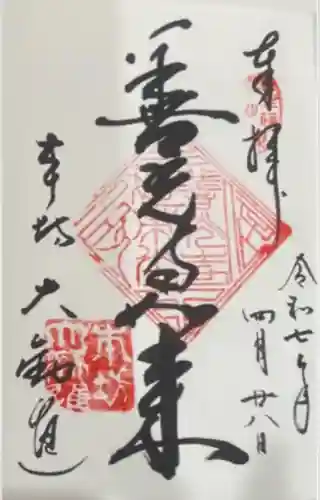 奉拝
令和七年
四月廿八日
善光寺如来
本坊 大勧進